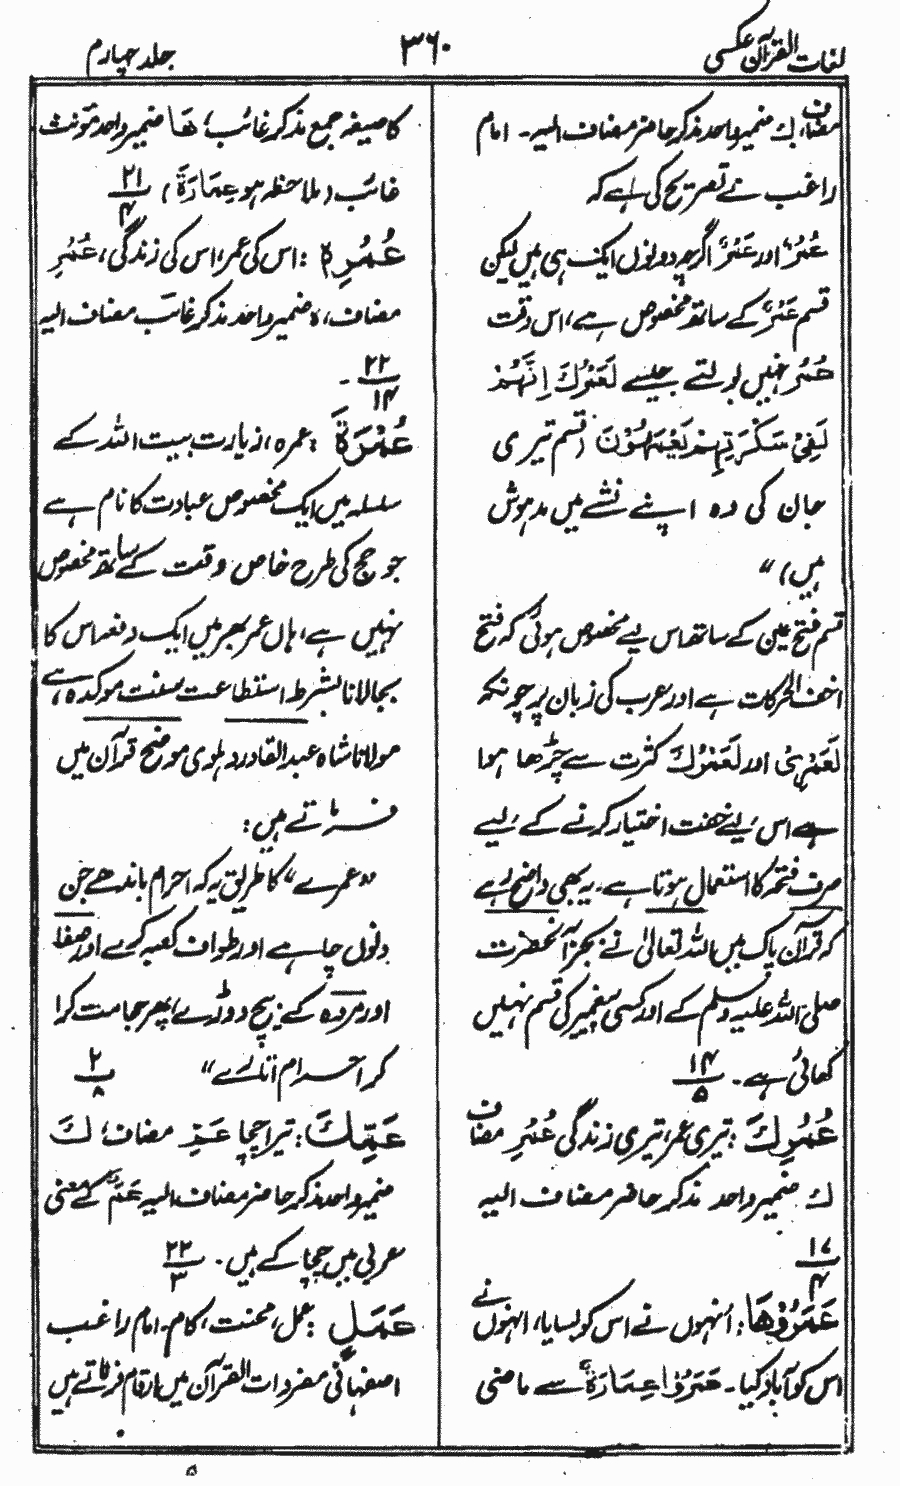 لغات القرآن عکسی
۳۶۰
جلد چہارم
مضاف، ك ضمیر واحد مذکر حاضر مضاف الیہ۔ امام
راغب نے تصریح کی ہے کہ
عُمُرٌ اور عَمْرٌ اگرچہ دونوں ایک ہی ہیں لیکن
قسم عَمْرٌ کے ساتھ مخصوص ہے، اس وقت
عُمُرٌ نہیں بولتے جیسے لَعَمْرُكَ اِنَّهُمْ
لَفِيْ سَكْرَتِهِمْ يَعْمَهُوْنَ (قسم تیری
جان کی وہ اپنے نشے میں مدہوش
ہیں) “
قسم فتح عین کے ساتھ اس لیے مخصوص ہوئی کہ فتح
اخف الحرکات ہے اور عرب کی زبان پر چونکہ
لَعَمْرِيْ اور لَعَمْرُكَ کثرت سے چڑھا ہوا
ہے اس لیے خفت اختیار کرنے کے لیے
صرف فتحہ کا استعمال ہوتا ہے۔ یہ بھی واضح رہے
کہ قرآن پاک میں اللہ تعالیٰ نے بجز آنحضرت
صلی اللہ علیہ وسلم کے اور کسی پیغمبر کی قسم نہیں
کھائی ہے۔ ۱۴/۵
عُمُرِكَ: تیری عمر، تیری زندگی عُمُرِ مضاف
ك ضمیر واحد مذکر حاضر مضاف الیہ
عَمَرُوْهَا: اُنہوں نے اس کو بسایا، انہوں نے
اس کو آباد کیا۔ عَمَرُوْا عِمَارَةٌ سے ماضی
کا صیغہ جمع مذکر غائب، هَا ضمیر واحد مؤنث
غائب (ملاحظہ ہو عِمَارَةَ) ۲۱/۴
عُمُرِهٖ: اس کی عمر، اس کی زندگی، عُمُرِ
مضاف، ہ ضمیر واحد مذکر غائب مضاف الیہ
۲۲/۱۴ ۔
عُمْرَةَ: عمرہ، زیارت بیت اللہ کے
سلسلہ میں ایک مخصوص عبادت کا نام ہے
جو حج کی طرح خاص وقت کے ساتھ مخصوص
نہیں ہے، ہاں عمر بھر میں ایک دفعہ اس کا
بجا لانا بشرط استطاعت سنت موکدہ ہے،
مولانا شاہ عبد القادر دہلوی موضح قرآن میں
فرماتے ہیں:
“عمرے” کا طریق یہ کہ احرام باندھے جن
دنوں چاہے اور طواف کعبہ کرے اور صفا
اور مروہ کے بیچ دوڑے، پھر حجامت کرا
کر احرام اتارے“ ۲/۸
عَمِّكَ: تیرا چچا عَمِّ مضاف، كَ
ضمیر واحد مذکر حاضر مضاف الیہ عَمّ کے معنی
عربی میں چچا کے ہیں۔ ۲۲/۳
عَمَلٍ: عمل، محنت، کام۔ امام راغب
اصفہانی مفردات القرآن میں ارقام فرماتے ہیں
۵